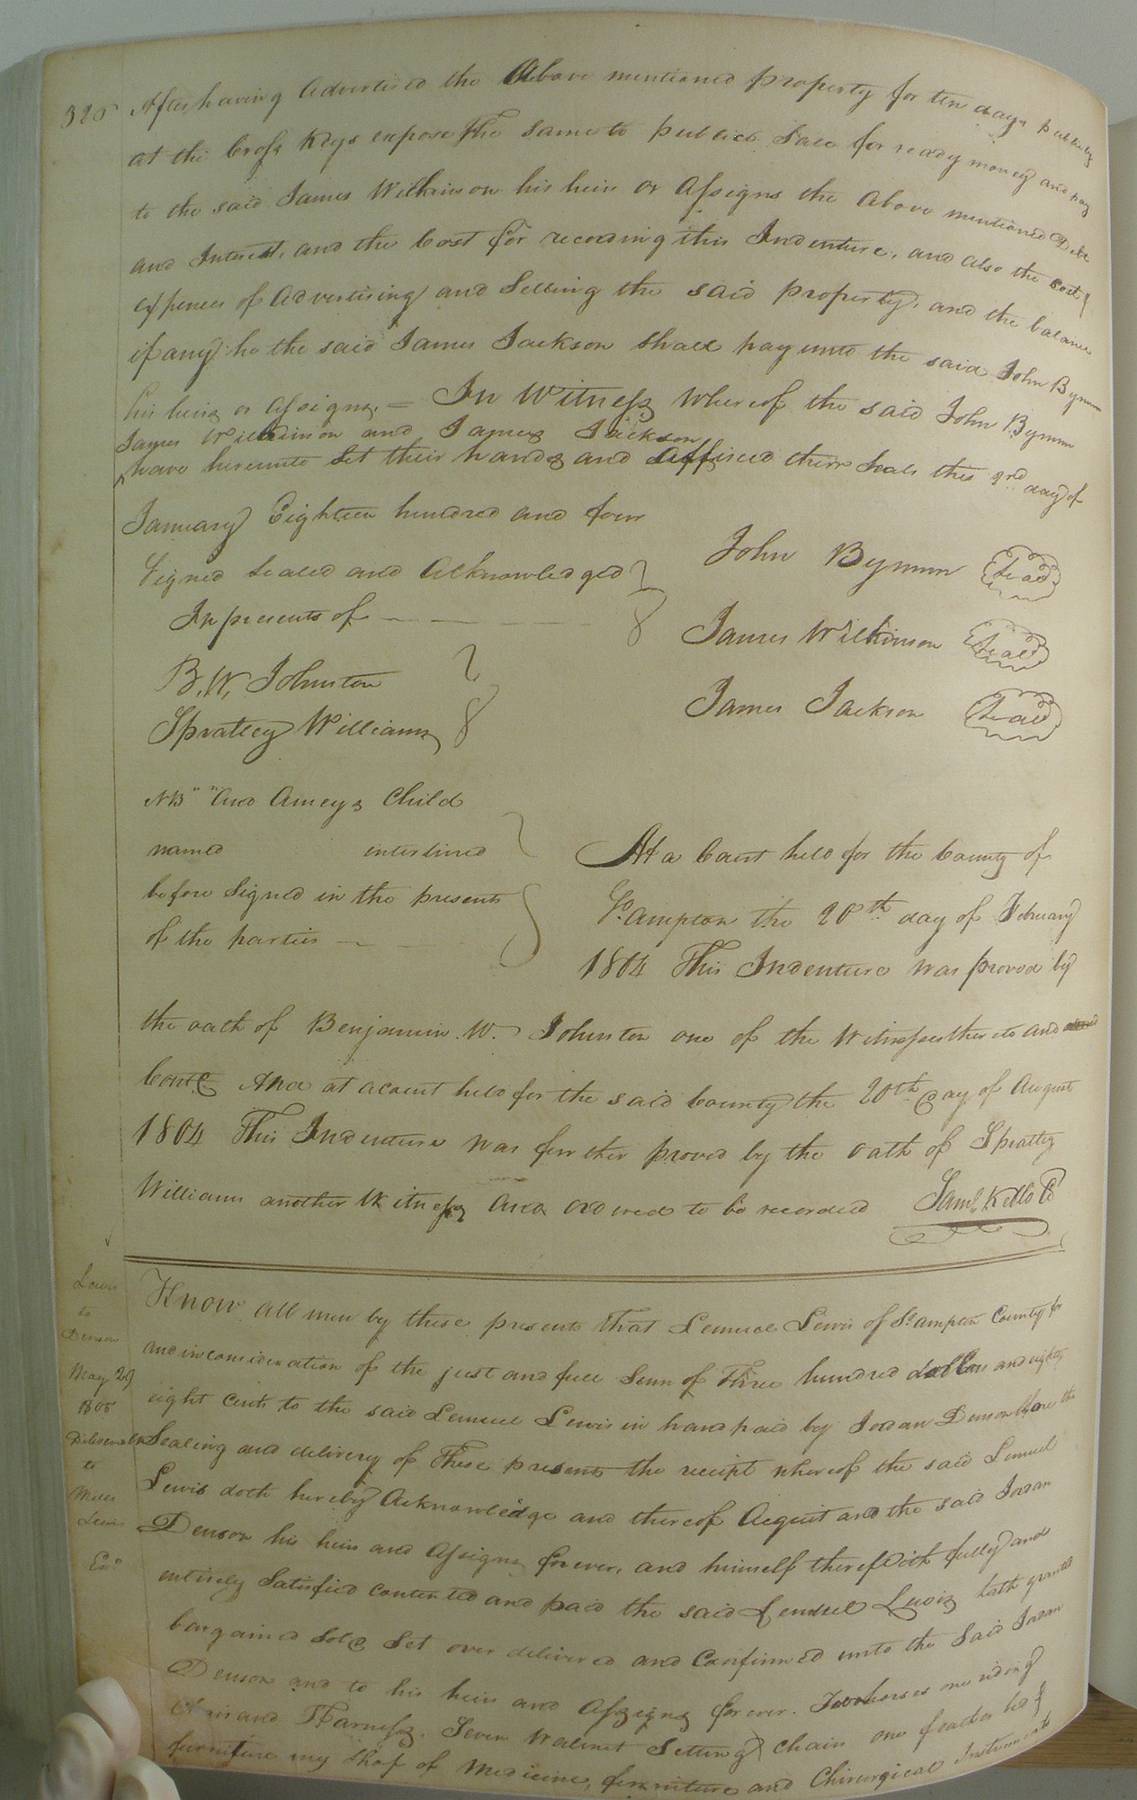 325 After having Advertised the Above mentioned property for ten days publickly
at the Cross Keys expose the same to publick Sale for ready money and pay
to the said James Wilkinson his heirs or Assigns the Above mentioned Debt
and Interest, and the Cost for recording this Indenture, and also the cost &
expences of Advertising and Selling the said property, and the balance
if any he the said James Jackson shall pay unto the said John Bynum
his heirs or Assigns, = In Witness Whereof the said John Bynum
James Wilkinson and James Jackson
have hereunto Set their hands and Affixed their Seals this 3rd day of
January Eighteen hundred and four
Signed Sealed and Acknowledged
In presents of
B. W. Johnston
Spratley Williams
John Bynum Seal
James Wilkinson Seal
James Jackson Seal
NB " " And Ameys Child
named interlined
before Signed in the presents
of the parties
At a Court held for the County of
So.ampton the 20th day of February
1804 This Indenture was proved by
the oath of Benjamin W. Johnston one of the Witnesses thereto and
Contd And at a Court held for the said County the 20th day of August
1804 This Indenture was further proved by the oath of Spratley
Williams another Witness And ordered to be recorded Saml. Kello Cl
Lewis
to
Denson
May 29
1805
Delivered
to
Miles
Lewis
Exr
Know all men by these presents that Lemuel Lewis of So.ampton County for
and in consideration of the just and full Sum of Three hundred dollars and eighty
eight Cents to the said Lemuel Lewis in hand paid by Jordan Denson before the
Sealing and delivery of These presents the receipt whereof the said Lemuel
Lewis doth hereby Acknowledge and thereof Acquit and the said Jordan
Denson his heirs and Assigns forever, and himself therewith fully and
entirely Satisfied contented and paid the said Lemuel Lewis hath granted
bargained Sold Set over delivered and Confirmed unto the Said Jordan
Denson and to his heirs and Assigns forever. Two horses one riding
Chair and Harness. Seven Walnut Setting chairs one feather bed &
furniture my Shop of Medicine, furniture and Chirurgical Instruments